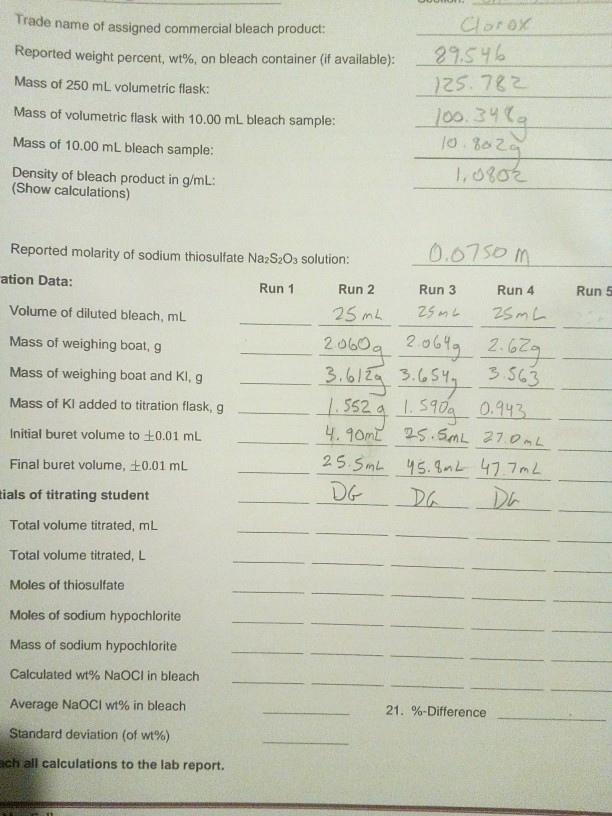 Trade name of assigned commercial bleach product: Clorox
Reported weight percent, wt%, on bleach container (if available): 89.546
Mass of 250 mL volumetric flask: 125.782
Mass of volumetric flask with 10.00 mL bleach sample: 100.348g
Mass of 10.00 mL bleach sample: 10.802g
Density of bleach product in g/mL: 1.0802
(Show calculations)
Reported molarity of sodium thiosulfate Na₂S₂O₃ solution: 0.0750 M
ation Data:
Run 1 Run 2 Run 3 Run 4 Run 5
Volume of diluted bleach, mL 25 mL 25 mL 25mL
Mass of weighing boat, g 2.060g 2.064g 2.62g
Mass of weighing boat and KI, g 3.612g 3.654g 3.563
Mass of KI added to titration flask, g 1.552 g 1.590g 0.943
Initial buret volume to ±0.01 mL 4.90mL 25.5mL 27.0mL
Final buret volume, ±0.01 mL 25.5mL 45.8mL 47.7mL
tials of titrating student DG DG DG
Total volume titrated, mL
Total volume titrated, L
Moles of thiosulfate
Moles of sodium hypochlorite
Mass of sodium hypochlorite
Calculated wt% NaOCl in bleach
Average NaOCl wt% in bleach 21. %-Difference
Standard deviation (of wt%)
ach all calculations to the lab report.